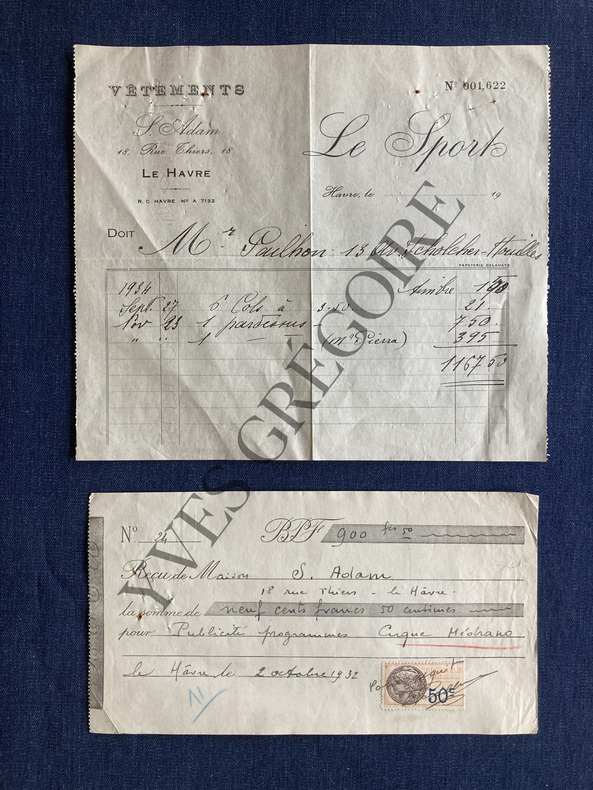 VÊTEMENTS
S. Adam
18, Rue Thiers, 18
LE HAVRE
R. C. HAVRE Nº A 7132
Nº 001,622
Le Sport
Havre, le 19
DOIT Mr Paulhon 13
PAPETERIE DELAHAYE
1934 timbre 1 50
Sept. 27 6 Cols à 3.50 21
Nov 23 1 pardessus 750.
" " 1 — (Mr Pierra) 395
1167.50
Nº 24 BPF 900 frs 50
Reçu de Maison S. Adam
18 rue Thiers - le Hâvre.
la somme de neuf cents francs 50 centimes
pour Publicité programmes Cirque Médrano
le Hâvre le 2 octobre 1932
Pour acquit
50c
11
YVES GRÉGOIRE